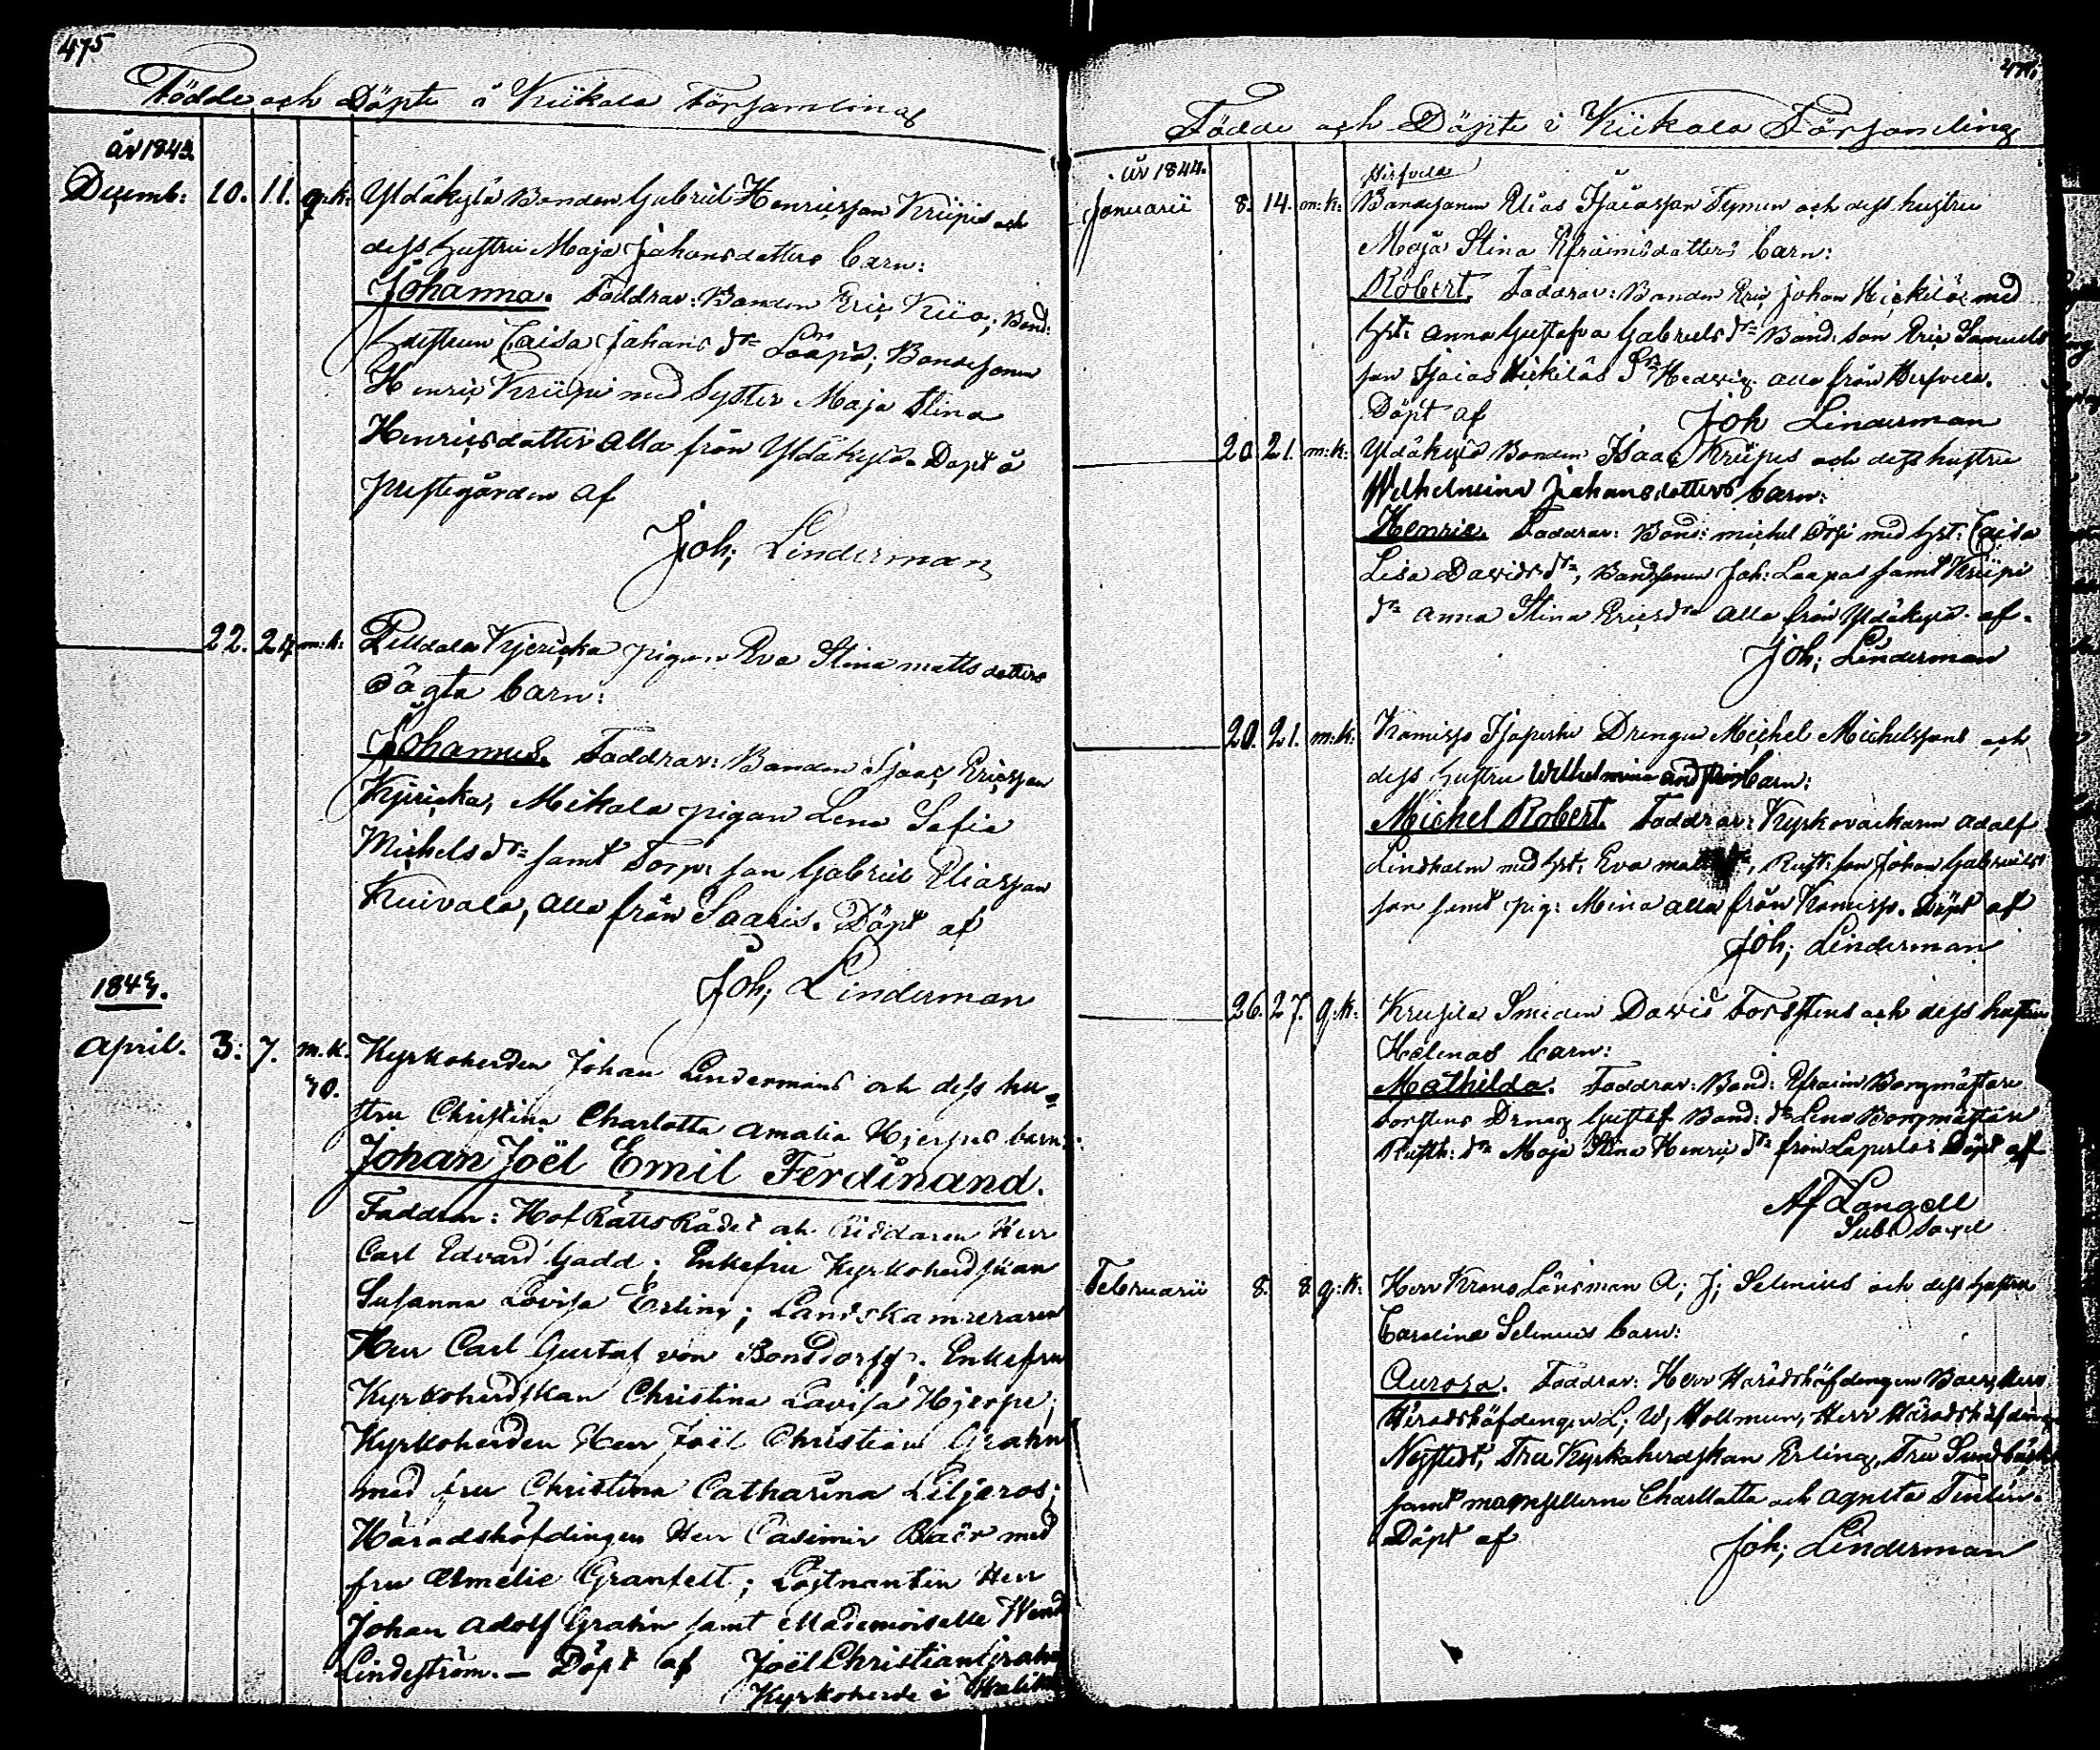 475
Födde och Döpte i Kiikala Församling
år 1843.
Decemb: 10. 11. q.k. Yldäkylä Bonden Gabriel Henricsson Kriipis och
dess hustru Maja Johansdotters barn:
Johanna. Faddrar: Bonden Eric Kiio; Bond:
hustrun Caisa Johans dr Laapas; Bondesonen
Henric Kriipi med Syster Maja Stina
Henricsdotter alla från Yldäkylä. Döpt i
prestegården af
Joh; Linderman
22. 24. m:k: Kjericka pigan Eva Stina matts dotters
oägta barn:
Johannes. Faddrar: Bonden Isaac Ericsson
Kjericka, Mikola pigan Lena Sofia
Michels dr samt Torp: son Gabriel Eliasson
Kuivala, alla från Saaris. Döpt af
Joh; Linderman
1843.
April. 3. 7. m.k. Kyrkoherden Johan Lindermans och dess hu=
30. stru Christina Charlotta Amalia Hjerpes barn:
Johan Joël Emil Ferdinand.
Faddrar: HofRättsRådet och Riddaren Herr
Carl Edvard Gadd; Enkefru Kyrkoherdskan
Susanna Lovisa Erling; Landskamreraren
Herr Carl Gustaf von Bonsdorff; Enkefru
Kyrkoherdskan Christina Lovisa Hjerpe;
Kyrkoherden Herr Joël Christian Grahn
med fru Christina Catharina Liljeros;
Häradshöfdingen Herr Casimir Baër med
fru Amelie Granfelt; Löjtnanten Herr
Johan Adolf Grahn samt Mademoiselle
Lindeström. — Döpt af Joël Christian Grahn
Kyrkoherde i
Födde och Döpte i Kiikala Församling
år 1844.
Hirsvela
Januarii 8. 14. m:k: Bondesonen Elias Isaiasson Tymen och dess hustru
Maja Stina Efraimsdotters barn:
Robert. Faddrar: Bonden Eric Johan Heikilä med
hst: Anna Gustafva Gabriels dr Bond: son Eric Samuels
son Isaias Heikiläs dr Hedvig. alla från Hirsvela.
Döpt af Joh Linderman
20. 21. m:k: Yldäkylä Bonden Isaac Kriipis och dess hustru
Wilhelmina Johansdotters barn:
Henric. Faddrar: Bond: michel med hst: Caisa
Lisa Davids dr, Bondsonen Joh: Laapas samt Kriipi
dr Anna Stina Erics dr alla från Yldäkylä. af.
Joh; Linderman
20. 21. m:k: Komisjo Drengen Michel Michelssons och
dess hustru Wilhelmina barn:
Michel Robert. Faddrar: Kyrkovächarn Adolf
Lindholm med hst: Eva , Rusth: son Johan Gabriels
son samt pig: Mina alla från Komisjo. Döpt af
Joh; Linderman
26. 27. q.k: Krusila Smeden David Torsstens och dess hustru
Helenas barn:
Mathilda. Faddrar: Bond: Efraim Borgmästare
Torstens Dreng Gustaf Bond: dr Lena Borgmästare
Rusth: dr Maja Stina Henric dr från Laperla. Döpt af
Af Langell
Februarii 8. 8. q:k: Herr Krono Länsman A; J; Selenius och dess hustru
Carolina Selenius barn:
Aurora. Faddrar: Herr Häradshöfdingen Baer, Herr
Häradshöfdingen L; W; Hollmen, Herr Häradshöfding
Nystedt, Fru Kyrkoherdskan Erling, Fru Sundbäck
samt mamsellerne Charllotta och Agneta Tenlén.
Döpt af Joh; Linderman